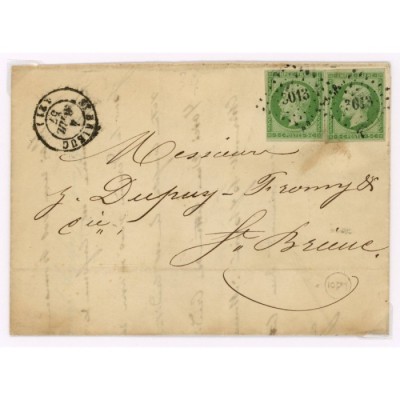 3013 3013
ST BRIEUC
4
57
(21)
Messieurs
J. Dupuy-Fromy &
Cie,
St. Brieuc.